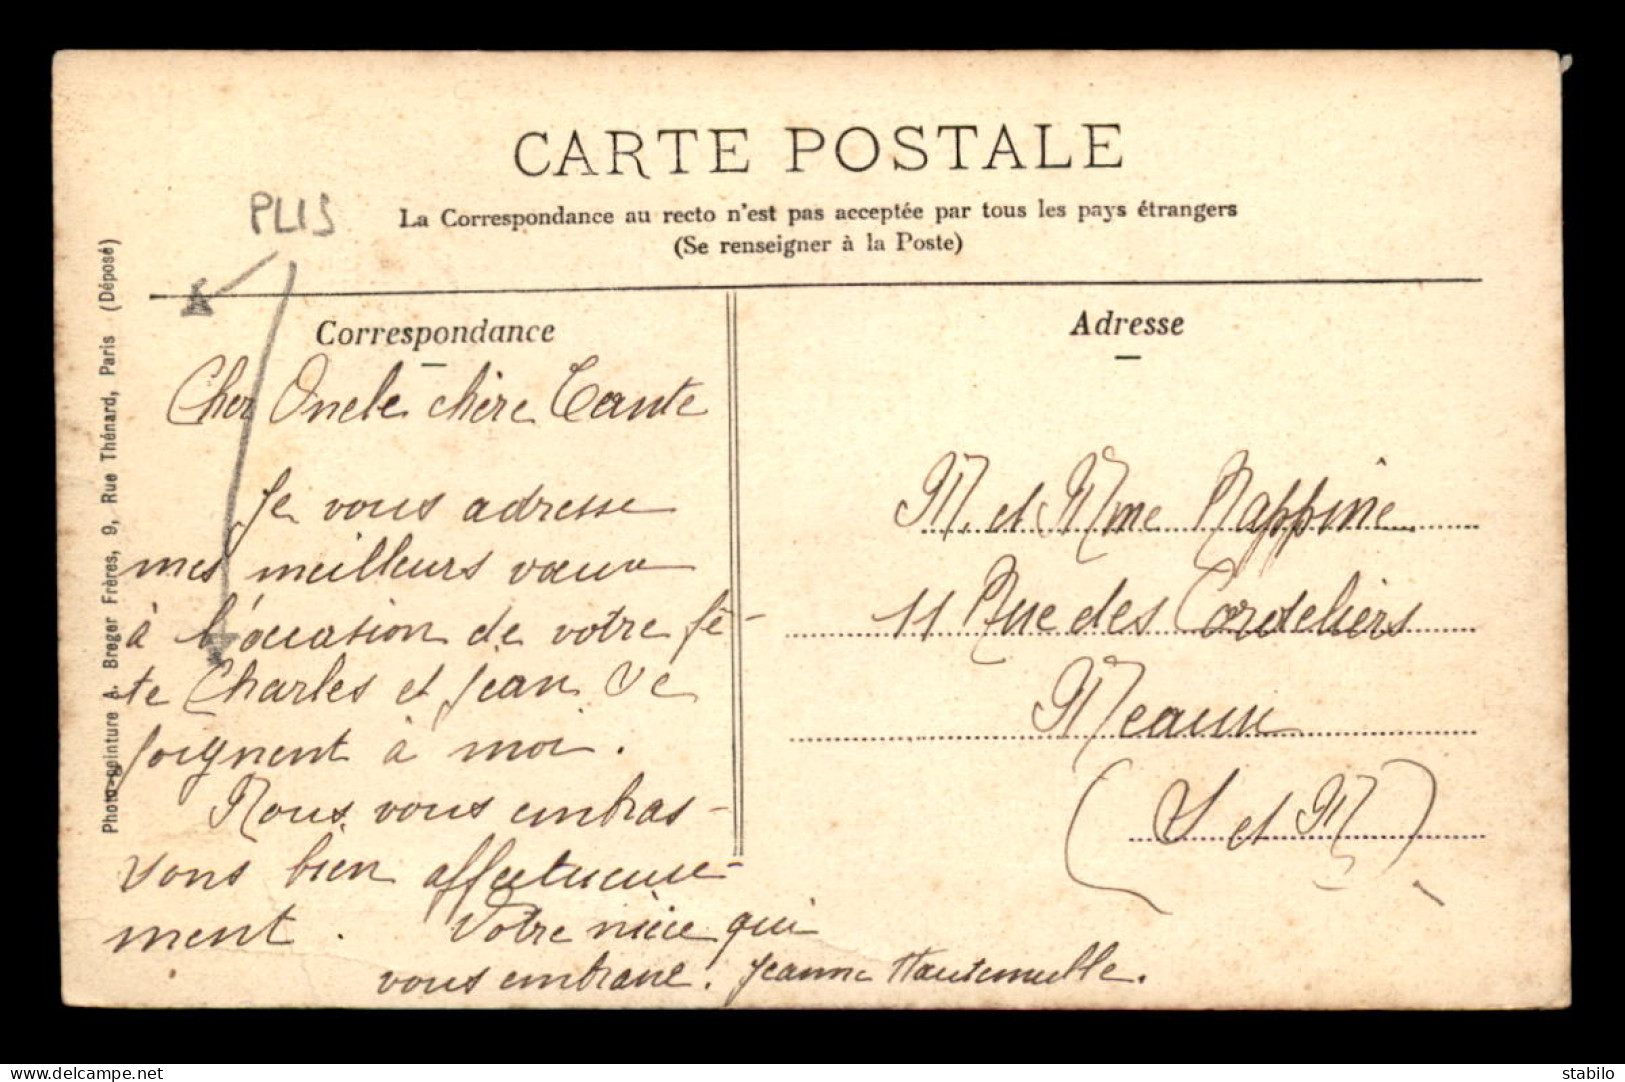 CARTE POSTALE
La Correspondance au recto n'est pas acceptée par tous les pays étrangers
(Se renseigner à la Poste)
PLIS
Photo-peinture A. Breger Frères, 9, Rue Thénard, Paris (Déposé)
Correspondance
Cher Oncle chère Tante
Je vous adresse
mes meilleurs vœux
à l'occasion de votre fê-
te Charles et Jean se
joignent à moi.
Nous vous embras-
sons bien affectueuse-
ment. Votre nièce qui
vous embrasse. Jeanne
Adresse
M. et Mme
11 Rue des Cordeliers
Meaux
(S et M)
www.delcampe.net
stabilo